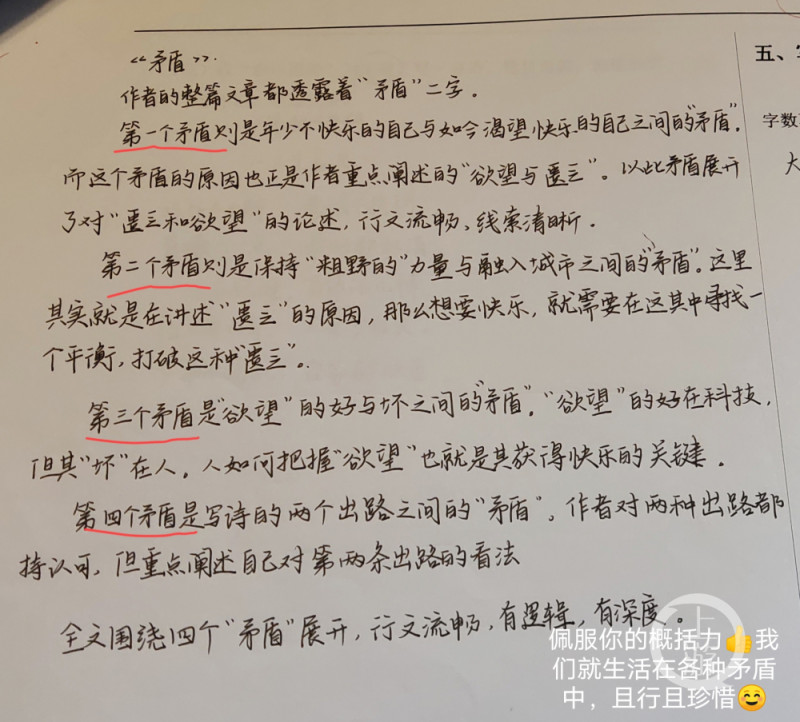 “矛盾”.
作者的整篇文章都透露着“矛盾”二字。
第一个矛盾则是年少不快乐的自己与如今渴望快乐的自己之间的“矛盾”.
而这个矛盾的原因也正是作者重点阐述的“欲望与匮乏”。以此矛盾展开
了对“匮乏和欲望”的论述，行文流畅、线索清晰.
第二个矛盾则是保持“粗野的”力量与融入城市之间的“矛盾”。这里
其实就是在讲述“匮乏”的原因，那么想要快乐，就需要在这其中寻找一
个平衡，打破这种“匮乏”.
第三个矛盾是“欲望”的好与坏之间的“矛盾”.“欲望”的好在科技，
但其“坏”在人。人如何把握“欲望”也就是其获得快乐的关键.
第四个矛盾是写诗的两个出路之间的“矛盾”。作者对两种出路都
持认可，但重点阐述自己对第两条出路的看法
全文围绕四个“矛盾”展开，行文流畅，有逻辑，有深度。
五、
字数
大
上游
佩服你的概括力👍我
们就生活在各种矛盾
中，且行且珍惜😊